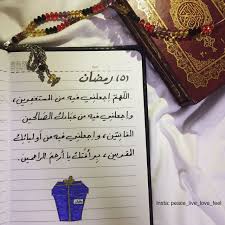 (٥) رمضان
اللهم اجعلني فيه من المستغفرين،
واجعلني فيه من عبادك الصالحين
القانتين، واجعلني فيه من أوليائك
المقربين، برأفتك يا أرحم الراحمين.
Insta: peace_live_love_feel